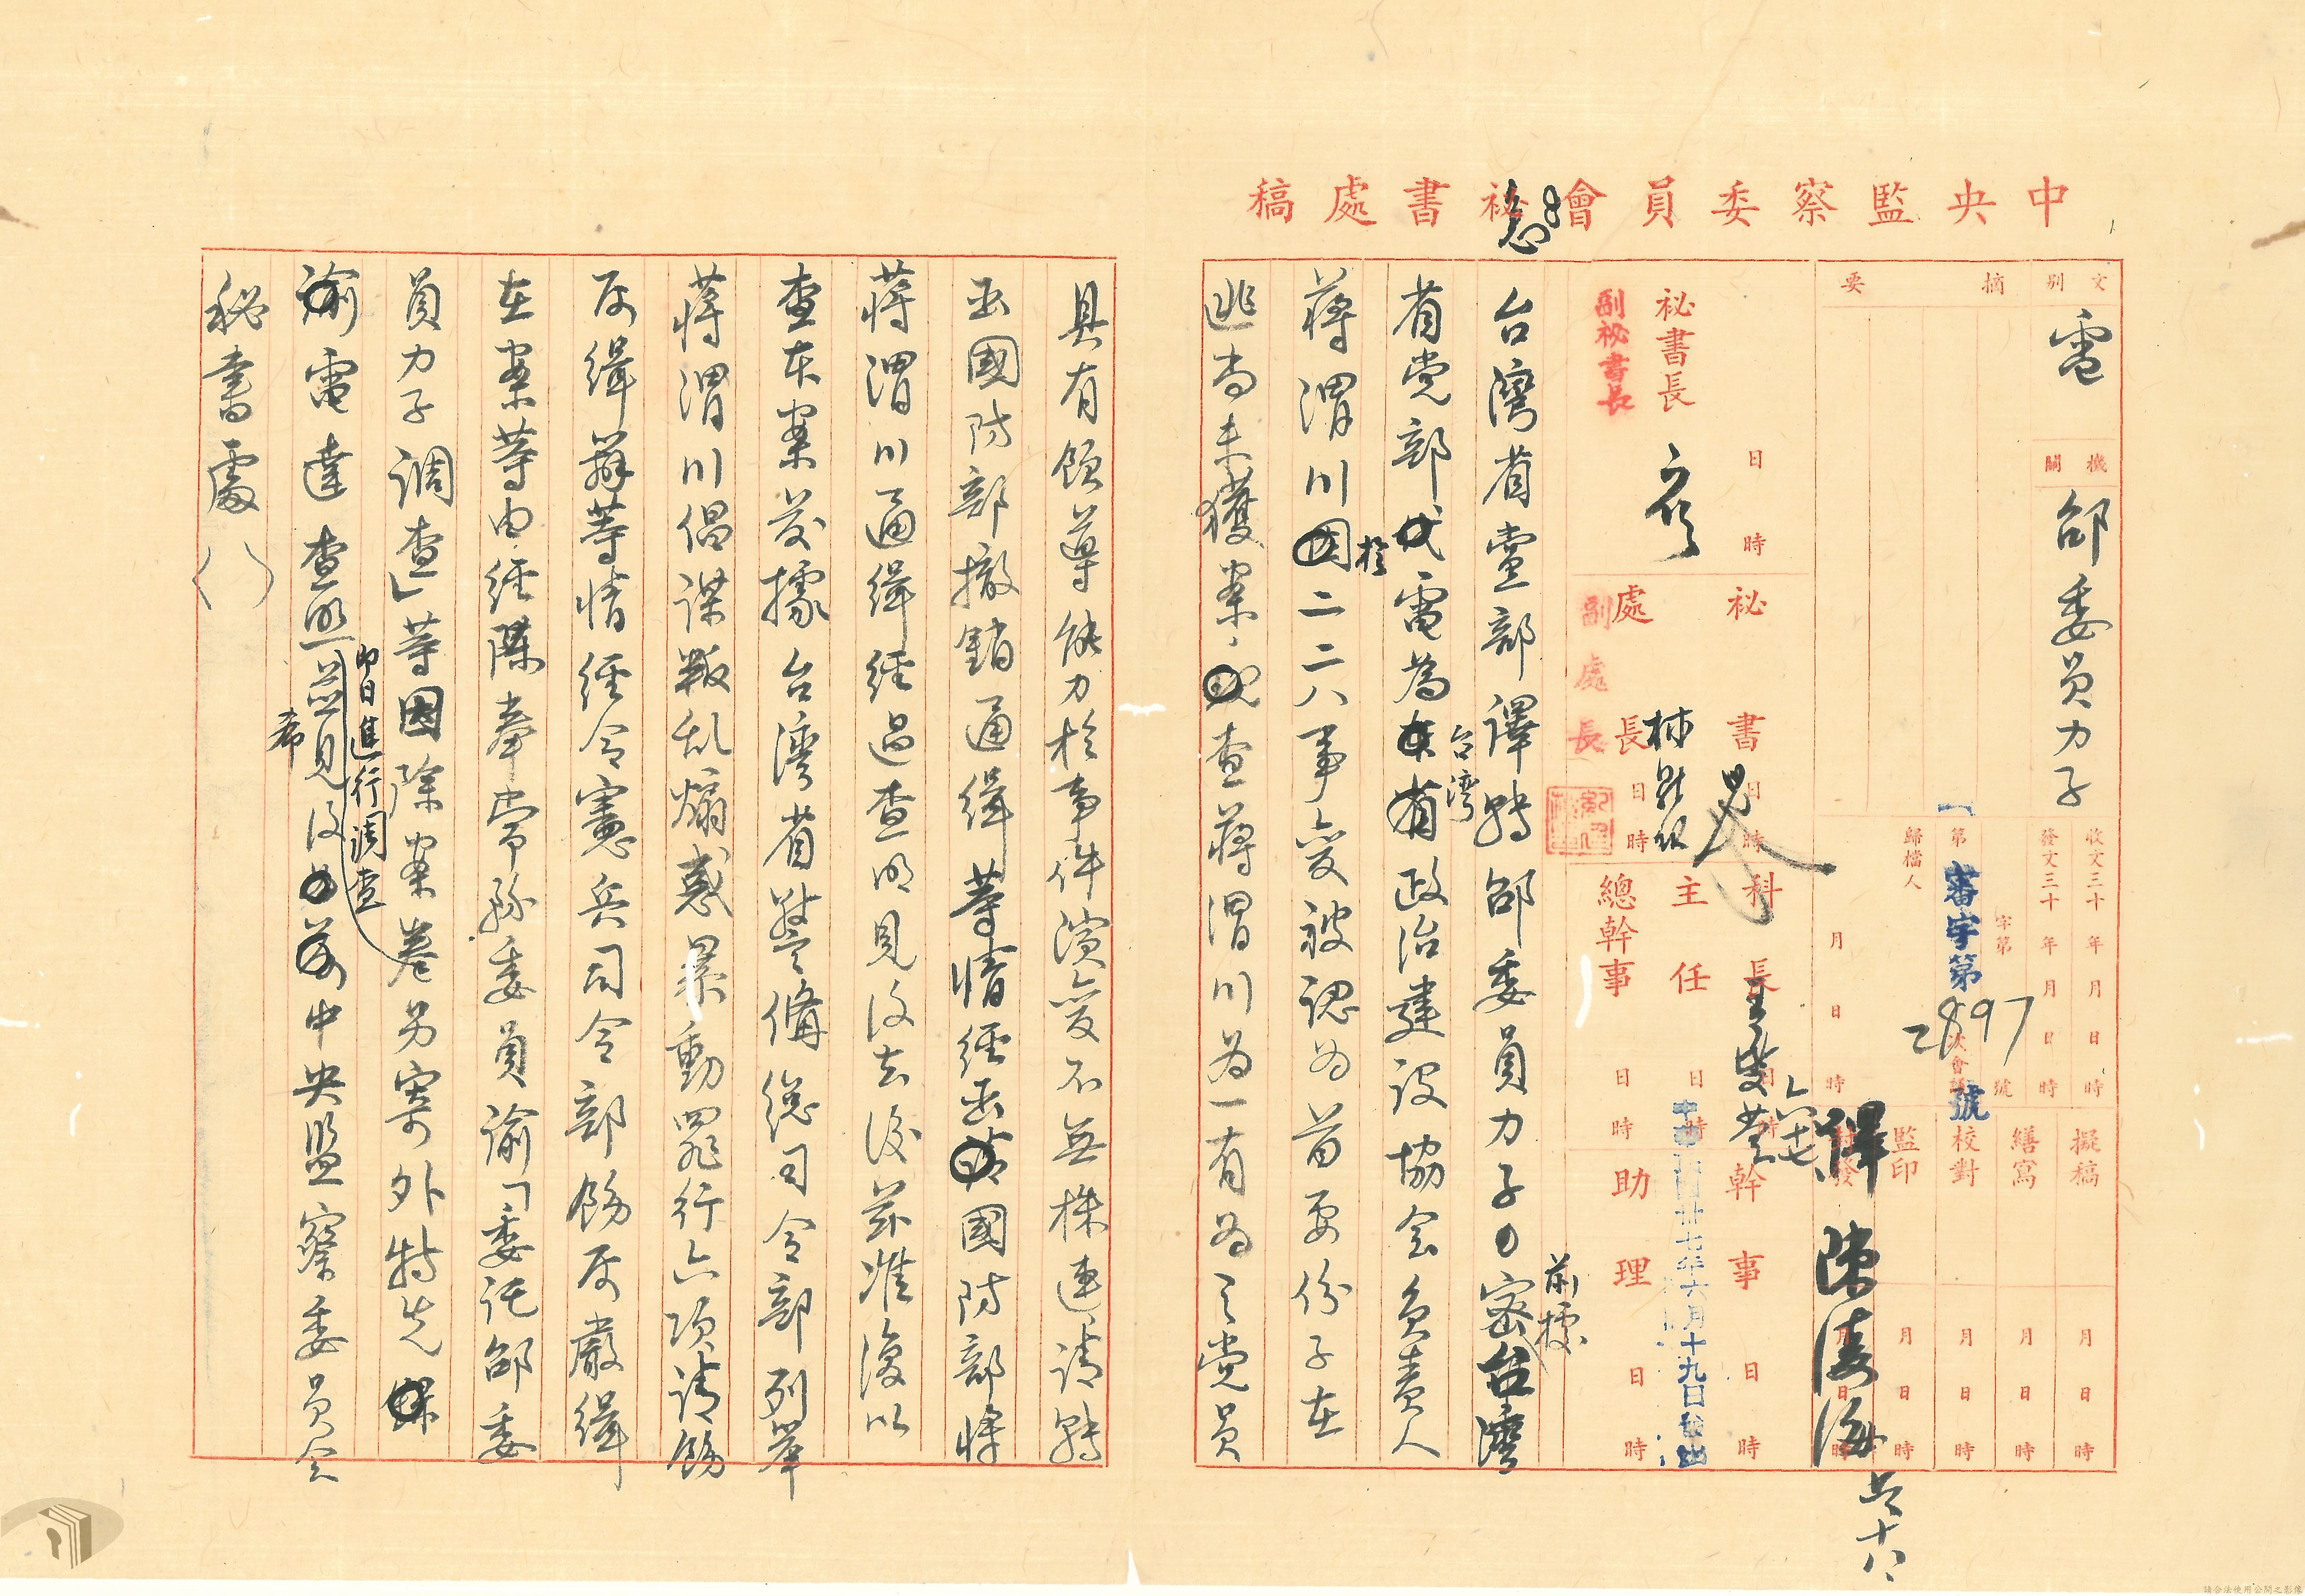 中央監察委員會祕書處稿
急
文別
電
摘要
機關
邰委員力子
收文三十 年 月 日 時
發文三十 年 月 日 時
字第 號
審字第2897號
歸檔人
月 日 時
擬稿 月 日 時
繕寫 月 日 時
校對 月 日 時
監印 月 日 時
譯 陳湊海 六十八
祕書長
副祕書長
日 時
祕書
日 時
處長
副處長
日 時
科長
主任
總幹事
日 時
幹事
助理
日 時
卅七年六月十九日
台灣省黨部譯轉邵委員力子密前據台灣
省党部電為台灣省政治建設協会負責人
蔣渭川於二二八事变被認为首要份子在
逃尚未獲案、查蔣渭川为一有为之党員
具有領導能力於事件演变不無株連請轉
函國防部撤銷通緝等情經函國防部將
蔣渭川通緝經過查明見復去後茲准復以
查本案前據台灣省警備総司令部列舉
蔣渭川倡謀叛乱煽惑暴動罪行六項請飭
屬緝辦等情經令憲兵司令部飭屬嚴緝
在案等由經陳奉常務委員諭「委託邵委
員力子調查」等因除案卷另寄外特先
電達查照即日進行調查
希見復 中央監察委員会
秘書處